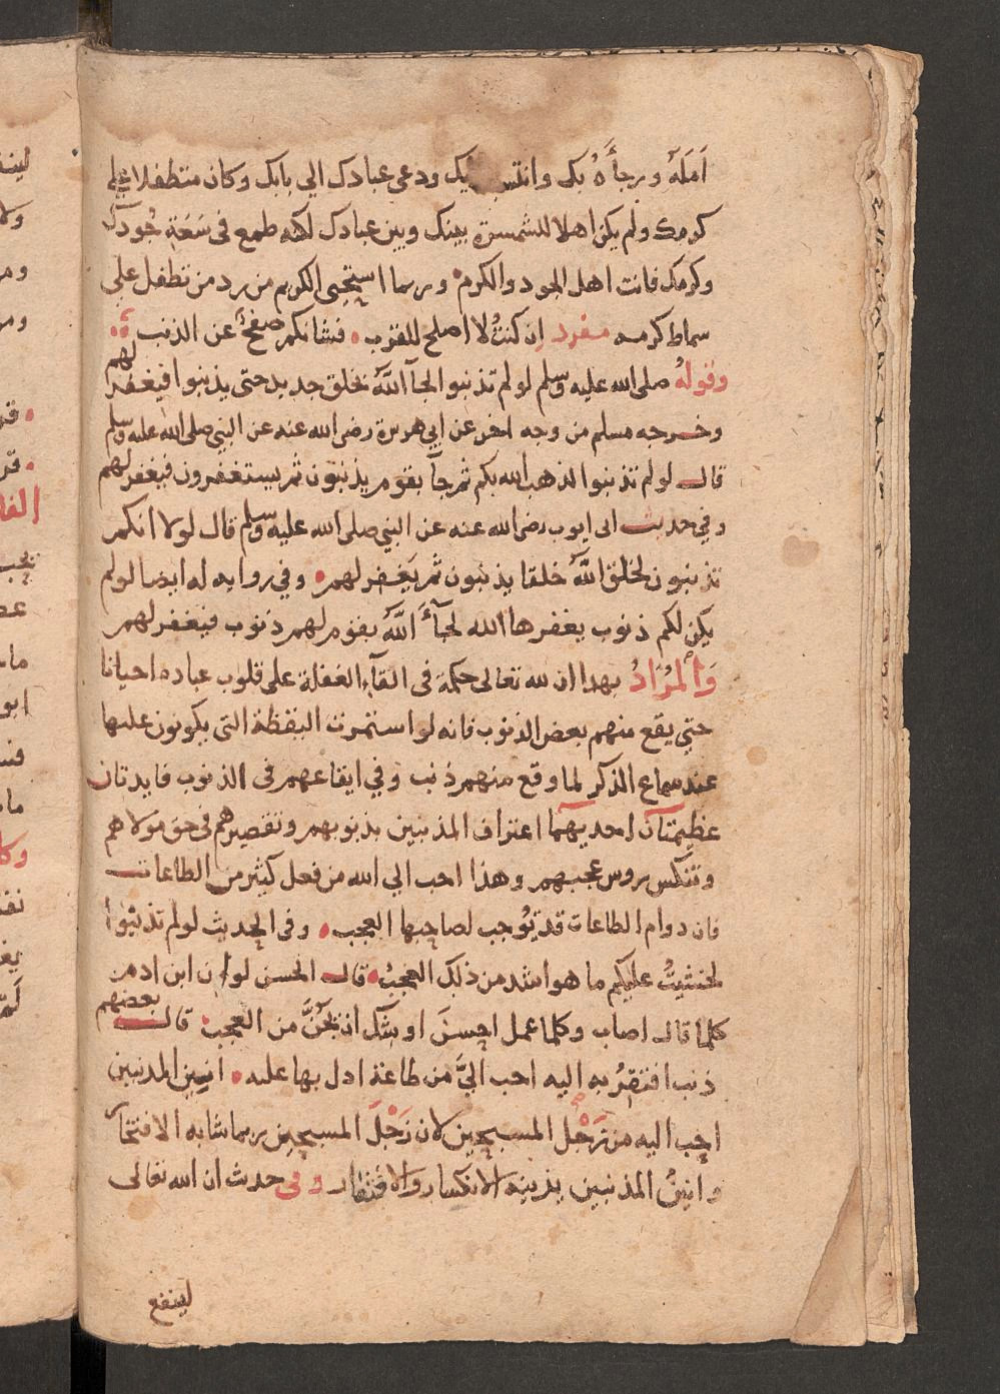 اَمَلَهُ ورجآءَهُ بك وانتسب اليك ودعى عبادك الي بابك وكان متطفلا علي
كرمك ولم يكن اهلا للشمسرة بينك وبين عبادك لكنه طمع في سَعَةِ جُودك
وكرمك فانت اهل الجود والكرم وربما استحيى الكريم من رد من تطفل على
سماط كرمه مفرد ان كنتُ لا اصلح للقرب فشانكم صفحٌ عن الذنب
وقولهُ صلى الله عليه وسلم لو لم تذنبوا لجآ اللهُ بخلق جديد حتى يذنبوا فيغفر لهم
وخرجه مسلم من وجه اخر عن ابي هريرة رضى الله عنه عن النبي صلى الله عليه وسلم
قال لو لم تذنبوا لذهب الله بكم ثم جآ بقوم يذنبون ثم يستغفرون فيغفر لهم
وفي حديث ابى ايوب رضى الله عنه عن النبي صلى الله عليه وسلم قال لولا انكم
تذنبون لخلق اللهُ خلقا يذنبون ثم يَغفر لهم وفي روايه له ايضا لو لم
يكن لكم ذنوب يغفرها الله لجآءَ اللهُ بقوم لهم ذنوب فيغفر لهم
وَالمُرَادُ بهدا ان لله تعالى حكمة فى القآء الغفلة على قلوب عباده احيانا
حتي يقع منهم بعض الذنوب فانه لو استمرت اليقظة التى يكونون عليها
عند سماع الذكر لما وقع منهم ذنب وفي ايقاعهم فى الذنوب فايدتان
عظيمتان احديهما اعتراف المذنبين بذنوبهم وتقصيرهم فى حق مولاهم
وتنكس روس عجبهم وهذا احب الي الله من فعل كثير من الطاعات
فان دوام الطاعات قد يُوجب لصاحبها العجب وفى الحديث لو لم تذنبوا
لخشيتُ عليكم ما هو اشد من ذلك العجبُ قال الحسن لو ان ابن ادم
كلما قال اصاب وكلما عمل احسنَ اوشك ان يُجَنَّ من العجب قال بعضهم
ذنب افتقرُ به اليه احب اليَّ من طاعة ادل بها عليه انين المذنبين
احب اليه من زَجَل المسبحين لان زَجَلَ المسبحين ربما شابه الافتخار
وانينُ المذنبين يزينه الانكسار والافتقار وفى حدث ان الله تعالى
لينفع